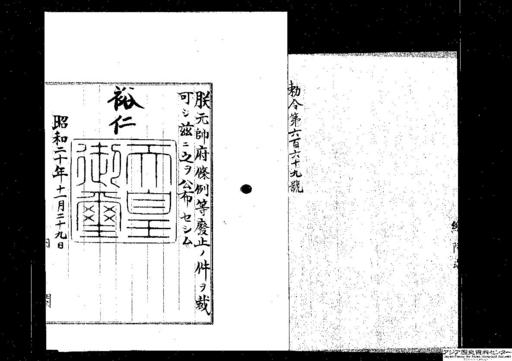 勅令第六百六十九號
朕元帥府條例等廢止ノ件ヲ裁
可シ玆ニ之ヲ公布セシム
裕仁
天皇
御璽
昭和二十年十一月二十九日
内閣
アジア歴史資料センター